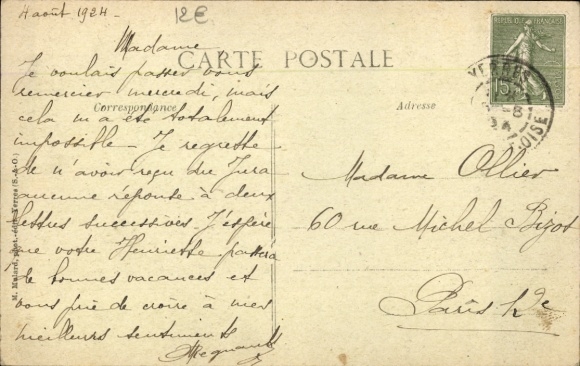 4 août 1924 -
12€
CARTE POSTALE
Correspondance
Adresse
Madame,
Je voulais passer vous
remercier mercredi, mais
cela m'a été totalement
impossible - Je regrette
de n'avoir reçu du Jura
aucune réponse à deux
lettres successives. J'espère
que votre Henriette passera
de bonnes vacances et
vous prie de croire à mes
meilleurs sentiments
Madame Ollier
60 rue Michel Bizot
Paris 12e
REPUBLIQUE FRANÇAISE
15c
YERRES
OISE
M. Mulard, phot. édit. Yerres (S.-&-O.)